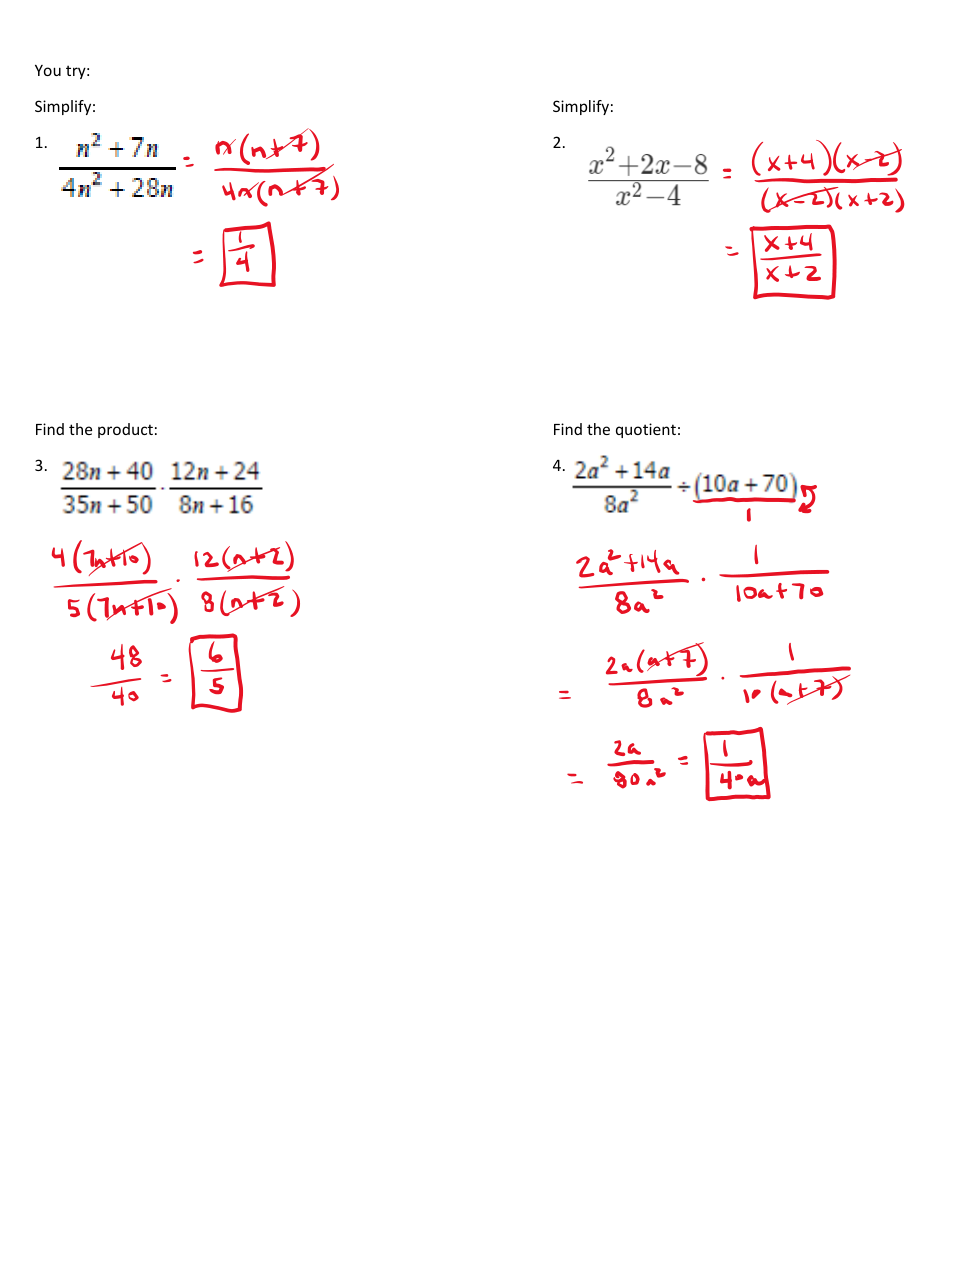 You try:
Simplify:
1. (n² + 7n)/(4n² + 28n) = n(n+7)/4n(n+7)
= 1/4
Simplify:
2. (x²+2x−8)/(x²−4) = (x+4)(x-2)/(x-2)(x+2)
= (x+4)/(x+2)
Find the product:
3. (28n + 40)/(35n + 50) · (12n + 24)/(8n + 16)
4(7n+10)/5(7n+10) · 12(n+2)/8(n+2)
48/40 = 6/5
Find the quotient:
4. (2a² + 14a)/8a² ÷ (10a + 70)
1
(2a²+14a)/8a² · 1/(10a+70)
= 2a(a+7)/8a² · 1/10(a+7)
= 2a/80a² = 1/40a